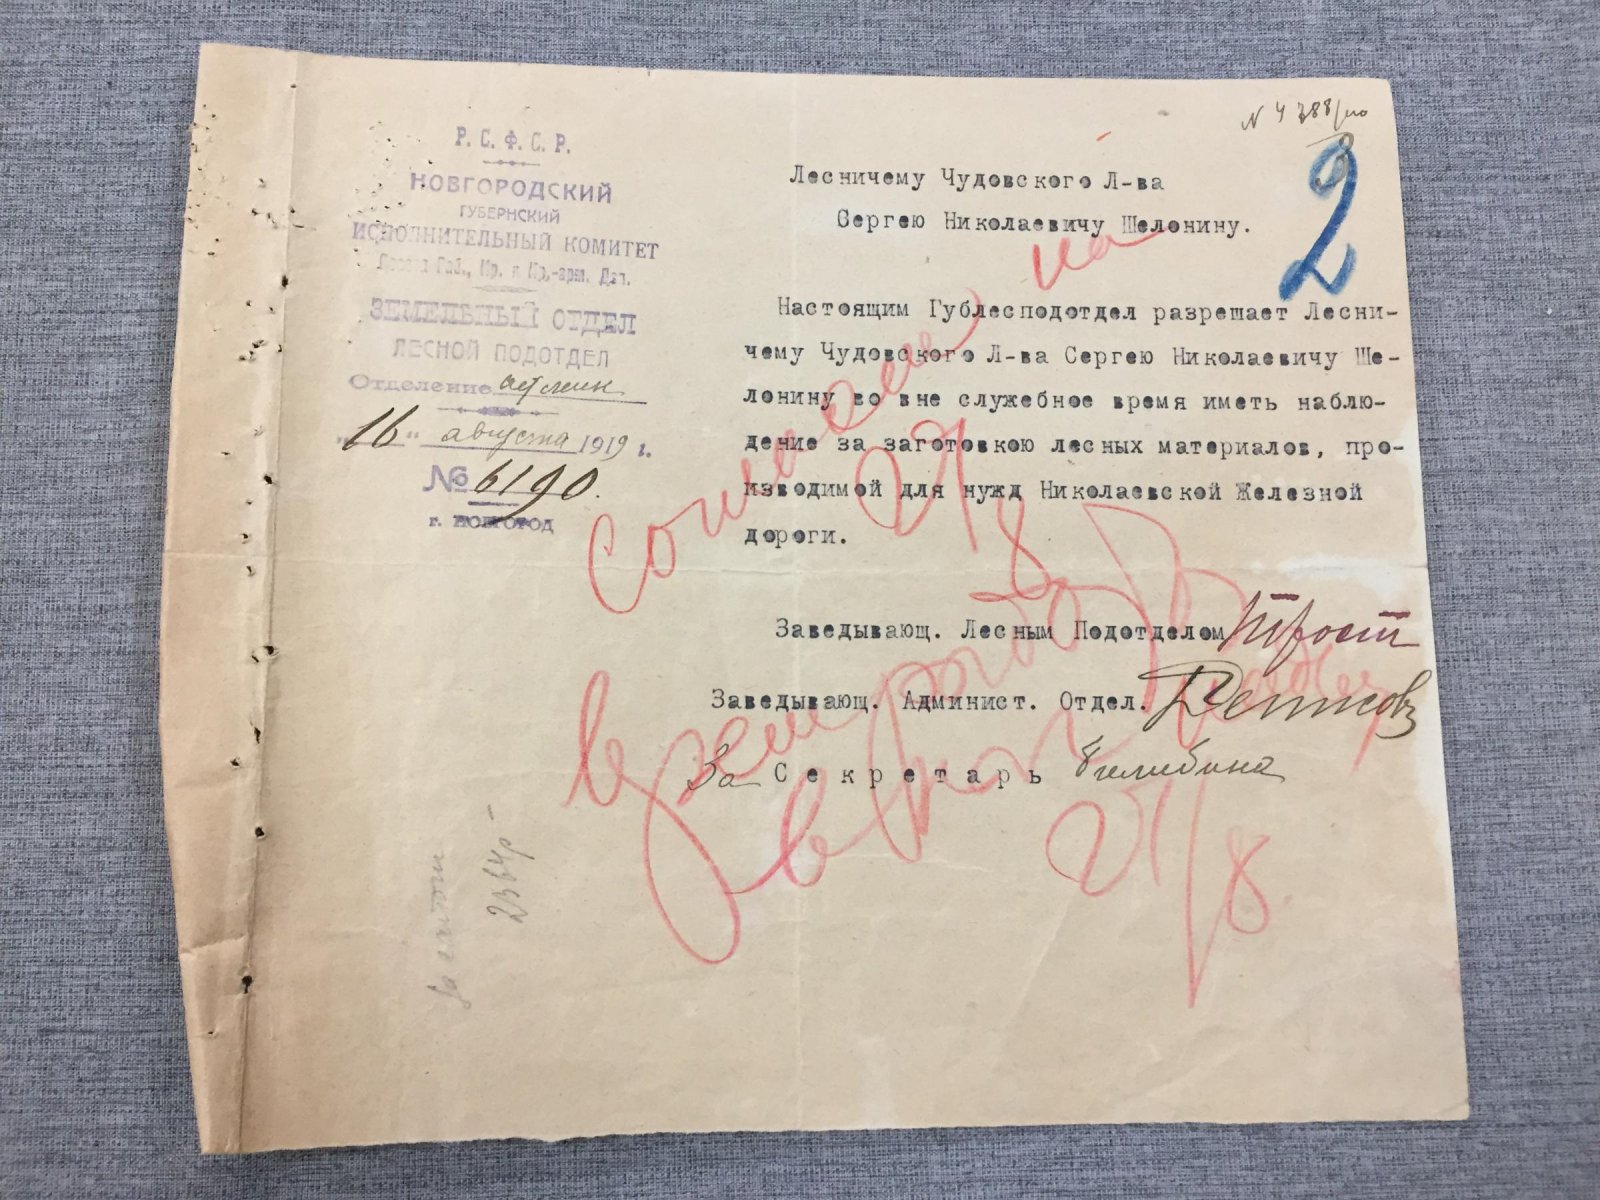 Р. С. Ф. С. Р.
НОВГОРОДСКИЙ
ГУБЕРНСКИЙ
ИСПОЛНИТЕЛЬНЫЙ КОМИТЕТ
ЗЕМЕЛЬНЫЙ ОТДЕЛ
ЛЕСНОЙ ПОДОТДЕЛ
Отделение
"16" августа 1919 г.
№ 6190.
г. НОВГОРОД
2
Лесничему Чудовского Л-ва
Сергею Николаевичу Шелонину.
Настоящим Гублесподотдел разрешает Лесни-
чему Чудовского Л-ва Сергею Николаевичу Ше-
лонину во вне служебное время иметь наблю-
дение за заготовкою лесных материалов, про-
изводимой для нужд Николаевской Железной
дороги.
Заведывающ. Лесным Подотделом
Заведывающ. Админист. Отдел. Денисовъ
За Секретарь
27/8
27/8.